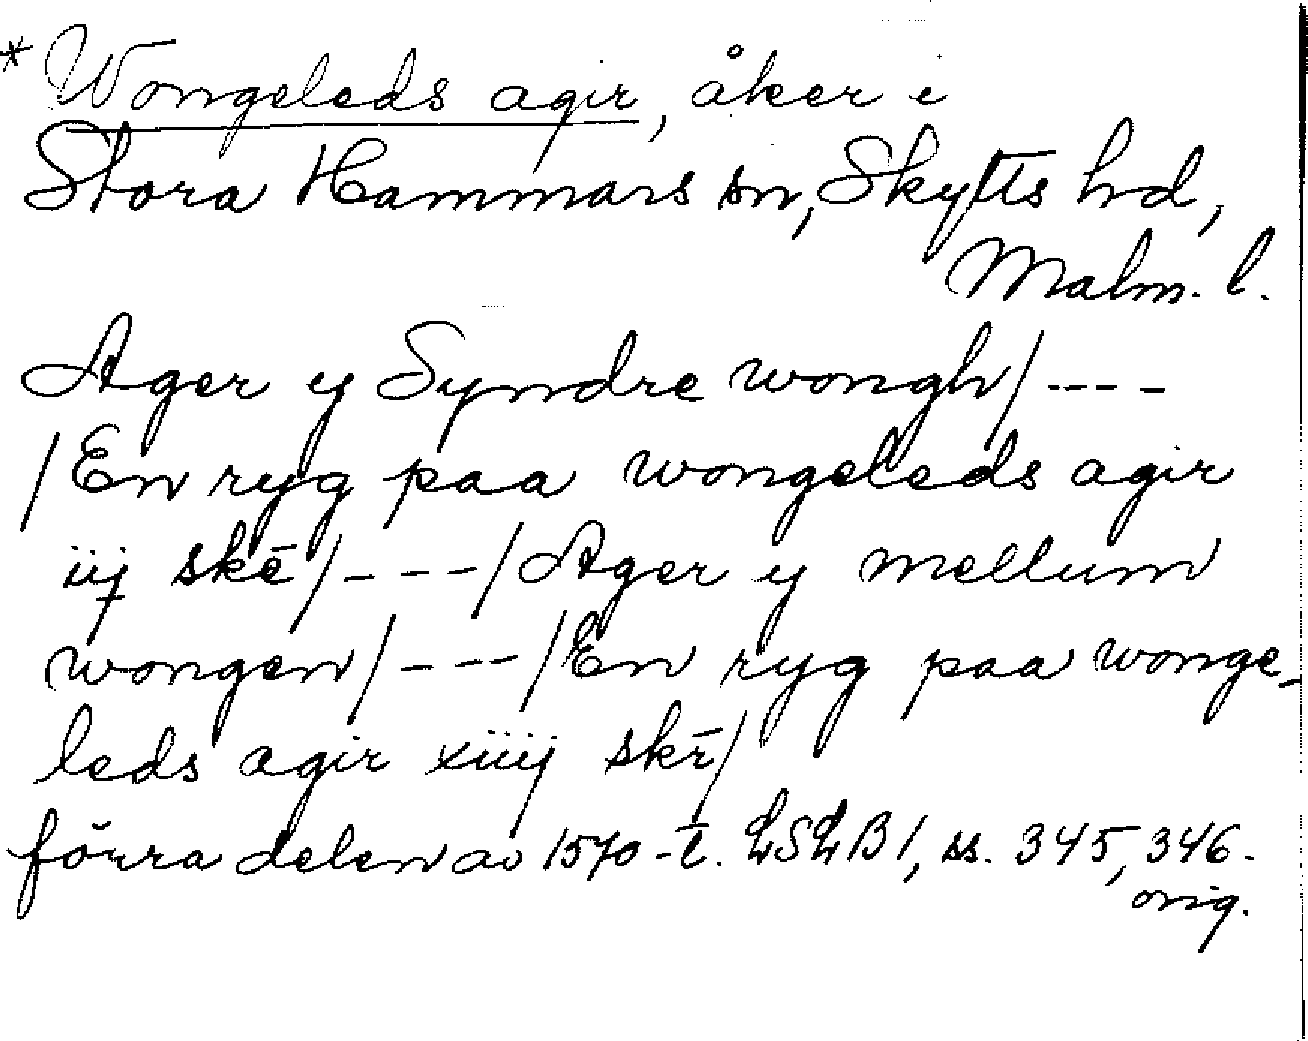 * Wongeleds agir, åker i
Stora Hammars sn, Skytts hd,
Malm. l.
Ager y Syndre wongh/----
/En ryg paa wongeleds agir
iij skē/----/Ager y mellum
wongen/---/En ryg paa wonge-
leds agir xiiij skē/
förra delen av 1570-t. LSLB 1, ss. 345, 346.
orig.